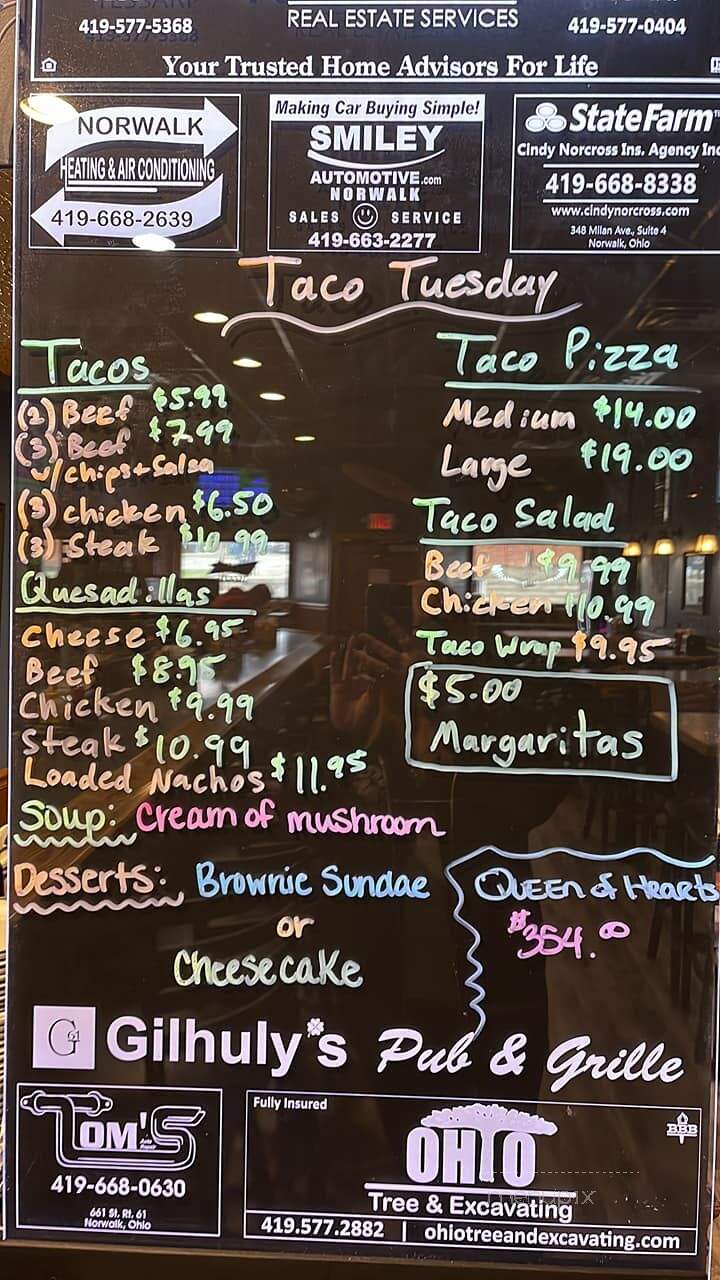 419-577-5368
REAL ESTATE SERVICES
419-577-0404
Your Trusted Home Advisors For Life
NORWALK
HEATING & AIR CONDITIONING
419-668-2639
Making Car Buying Simple!
SMILEY
AUTOMOTIVE.com
NORWALK
SALES SERVICE
419-663-2277
StateFarm
Cindy Norcross Ins. Agency Inc
419-668-8338
www.cindynorcross.com
348 Milan Ave., Suite 4
Norwalk, Ohio
Taco Tuesday
Tacos
(2) Beef $5.99
(3) Beef $7.99
w/chips+Salsa
(3) chicken $6.50
(3) Steak $10.99
Quesadillas
Cheese $6.95
Beef $8.95
Chicken $9.99
Steak $10.99
Loaded Nachos $11.95
Taco Pizza
Medium $14.00
Large $19.00
Taco Salad
Beef $9.99
Chicken $10.99
Taco Wrap $9.95
$5.00
Margaritas
Soup: Cream of mushroom
Desserts: Brownie Sundae
or
Cheesecake
Queen of Hearts
$354.00
G61 Gilhuly's Pub & Grille
TOM'S
Auto Repair
419-668-0630
661 St. Rt. 61
Norwalk, Ohio
Fully Insured
BBB
OHIO
Tree & Excavating
419.577.2882 | ohiotreeandexcavating.com
menupix